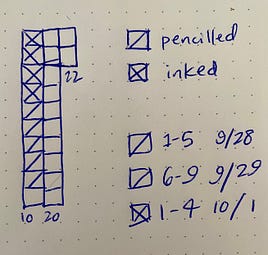 pencilled
inked
22
1-5 9/28
6-9 9/29
1-4 10/1
10 20